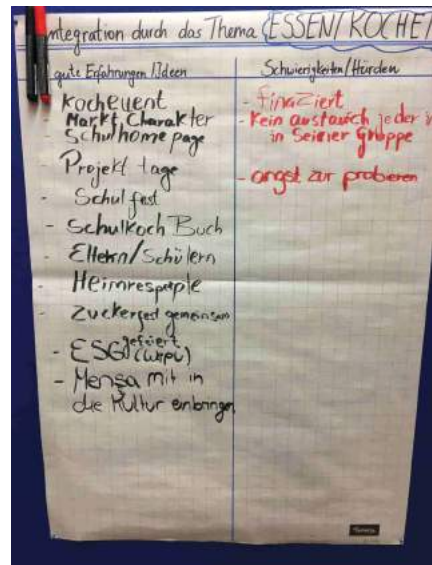 Integration durch das Thema ESSEN/KOCHEN
gute Erfahrungen/Ideen
- Kochevent
Markt Charakter
- Schulhomepage
- Projekttage
- Schulfest
- Schulkoch Buch
- Eltern/Schülern
- Heimrespeple
- Zuckerfest gemeinsam
gefeiert
- ESG (WPU)
- Mensa mit in
die Kultur einbringen
Schwierigkeiten/Hürden
- finaziert
- Kein austausch jeder
in Seiner Gruppe
- angst zur probieren